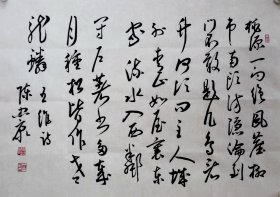 桃源一向絕風塵柳
市南頭訪隱淪到
門不敢題凡鳥看
竹何須問主人城
外青山如屋裏東
家流水入西鄰
閉户著書多歲
月種松皆作老
龍鱗 王維詩
陳